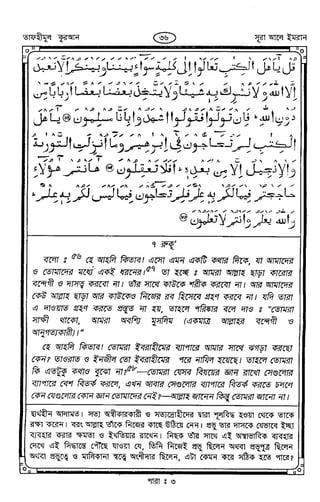 তাফহীমুল কুরআন
৩৬
সূরা আলে ইমরান
قُلْ يٰٓاَهْلَ الْكِتٰبِ تَعَالَوْا اِلٰى كَلِمَةٍ سَوَآءٍۢ بَيْنَنَا وَبَيْنَكُمْ اَلَّا نَعْبُدَ
اِلَّا اللّٰهَ وَلَا نُشْرِكَ بِهٖ شَيْئًا وَّلَا يَتَّخِذَ بَعْضُنَا بَعْضًا اَرْبَابًا مِّنْ
دُوْنِ اللّٰهِ ۚ فَاِنْ تَوَلَّوْا فَقُوْلُوا اشْهَدُوْا بِاَنَّا مُسْلِمُوْنَ ۞ يٰٓاَهْلَ
الْكِتٰبِ لِمَ تُحَآجُّوْنَ فِيْٓ اِبْرٰهِيْمَ وَمَآ اُنْزِلَتِ التَّوْرٰىةُ
وَالْاِنْجِيْلُ اِلَّا مِنْۢ بَعْدِهٖ ۭ اَفَلَا تَعْقِلُوْنَ ۞ هٰٓاَنْتُمْ هٰٓؤُلَآءِ
حَاجَجْتُمْ فِيْمَا لَكُمْ بِهٖ عِلْمٌ فَلِمَ تُحَآجُّوْنَ فِيْمَا لَيْسَ لَكُمْ بِهٖ عِلْمٌ ۭ
وَاللّٰهُ يَعْلَمُ وَاَنْتُمْ لَا تَعْلَمُوْنَ ۞
৭ রুকূ'
বলো : ৫৬ হে আহলি কিতাব! এসো এমন একটি কথার দিকে, যা আমাদের
ও তোমাদের মধ্যে একই ধরনের।৫৭ তা হচ্ছে : আমরা আল্লাহ ছাড়া কারোর
বন্দেগী ও দাসত্ব করবো না। তাঁর সাথে কাউকে শরীক করবো না। আর আমাদের
কেউ আল্লাহ ছাড়া আর কাউকেও নিজের রব হিসেবে গ্রহণ করবে না। যদি তারা
এ দাওয়াত গ্রহণ করতে প্রস্তুত না হয়, তাহলে পরিষ্কার বলে দাও : "তোমরা
সাক্ষী থাকো, আমরা অবশ্যি মুসলিম (একমাত্র আল্লাহর বন্দেগী ও
আনুগত্যকারী)।"
হে আহলি কিতাব! তোমরা ইবরাহীমের ব্যাপারে আমার সাথে ঝগড়া করছো
কেন? তাওরাত ও ইনজীল তো ইবরাহীমের পরে নাযিল হয়েছে। তাহলে তোমরা
কি এতটুকু কথাও বুঝো না।৫৮—তোমরা যেসব বিষয়ের জ্ঞান রাখো সেগুলোর
ব্যাপারে বেশ বিতর্ক করলে, এখন আবার সেগুলোর ব্যাপারে বিতর্ক করতে চললে
কেন যেগুলোর কোন জ্ঞান তোমাদের নেই?—আল্লাহ জানেন কিন্তু তোমরা জানো না।
দ্ব্যর্থহীন আলামত। সত্য অস্বীকারকারী ও সত্যদ্রোহীদের দ্বারা শূলবিদ্ধ হওয়া থেকে তাকে
রক্ষা করেন। বরং আল্লাহ তাঁকে নিজের কাছে উঠিয়ে নেন। প্রভু তার দাসকে যেভাবে ইচ্ছা
ব্যবহার করার ক্ষমতা ও ইখতিয়ার রাখেন। নিছক তাঁর সাথে এই অস্বাভাবিক ব্যবহার
দেখে এই সিদ্ধান্তে পৌঁছে যাওয়া যে, তিনি নিজেই প্রভু ছিলেন অথবা প্রভুপুত্র ছিলেন
অথবা প্রভুত্বে ও মালিকানা স্বত্বে অংশীদার ছিলেন, এটা কেমন করে সঠিক হতে পারে?
পারা : ৩